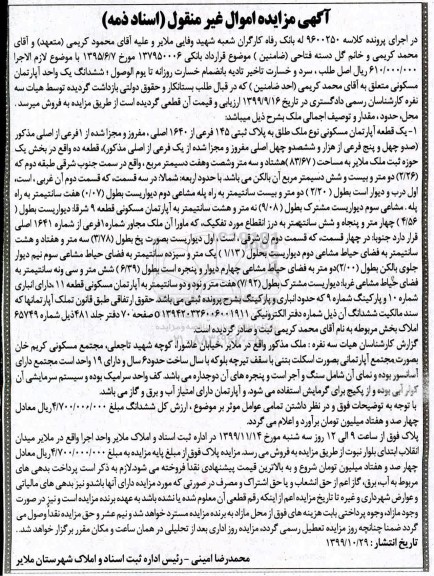 آگهی مزایده اموال غیر منقول (اسناد ذمه)
در اجرای پرونده کلاسه ۹۶۰۰۲۵۰ له بانک رفاه کارگران شعبه شهید وفایی ملایر و علیه آقای محمود کریمی (متعهد) و آقای
محمد کریمی و خانم گل دسته فتاحی (ضامنین) موضوع قرارداد بانکی ۱۳۷۹۵۰۰۰۶ مورخ ۱۳۹۵/۶/۷ خسارت با موضوع لازم الاجرا
۶۱۰/۰۰۰/۰۰۰ ریال اصل طلب ، سرد و خسارت تاخیر تادیه بانضمام خسارت روزانه تا یوم الوصول ؛ ششدانگ یک واحد آپارتمان
مسکونی متعلق به آقای محمد کریمی (احد ضامنین) که در قبال طلب بستانکار و حقوق دولتی بازداشت گردیده توسط هیات سه
نفره کارشناسان رسمی دادگستری در تاریخ ۱۳۹۹/۹/۱۶ ارزیابی و قیمت آن قطعی گردیده است از طریق مزایده به فروش میرسد.
محل، حدود، مقدار و توصیف اجمالی ملک بشرح ذیل میباشد:
۱- یک قطعه آپارتمان مسکونی نوع ملک طلق به پلاک ثبتی ۱۴۵ فرعی از ۱۶۴۰ اصلی، مفروز و مجزا شده از ۱ فرعی از اصلی مذکور
(صد و چهل و پنج فرعی از هزار و ششصد و چهل اصلی مفروز و مجزا شده از یک فرعی از اصلی مذکور)، قطعه ده واقع در بخش یک
حوزه ثبت ملک ملایر به مساحت (۸۳/۶۷) هشتاد و سه متر و شصت وهفت دسیمتر مربع، واقع در سمت جنوب شرقی طبقه دوم که
(۲/۲۶) دو متر و بیست و شش دسیمتر مربع آن بالکن می باشد. با حدود اربعه: شمالا: در سه قسمت، که قسمت دوم آن غربی ، است،
اول درب و دیوار است بطول (۲/۲۰) دو متر و بیست سانتیمتر به راه پله مشاعی دوم دیواریست بطول (۰/۰۷) هفت سانتیمتر به راه
پله . مشاعی سوم دیواریست مشترک بطول (۹/۰۸) نه متر و هشت سانتیمتر به آپارتمان مسکونی قطعه ۹ شرقا: دیواریست بطول (
۴/۵۶) چهار متر و پنجاه و شش سانتیمتر به درز انقطاع مورد تفکیک، که ماورا آن ملک مجاور شماره ۱ فرعی از شماره ۱۶۴۱ اصلی
قرار دارد جنوبا: در چهار قسمت، که قسمت دوم آن شرقی ، است، اول دیواریست بصورت پخ بطول (۳/۷۸) سه متر و هفتاد و هشت
سانتیمتر به فضای حیاط مشاعی دوم دیواریست بطول (۱/۱۳) یک متر و سیزده سانتیمتر به فضای حیاط مشاعی سوم نیم دیوار
جلوی بالکن بطول (۲/۰۰) دو متر به فضای حیاط مشاعی چهارم دیوار و پنجره است بطول (۶/۳۹) شش متر و سی ونه سانتیمتر به
فضای حیاط مشاعی غربا: دیواریست مشترک بطول (۷/۹۲) هفت متر و نود و دو سانتیمتر به آپارتمان مسکونی قطعه ۱۱ .دارای انباری
شماره ۱۰ و پارکینگ شماره ۹ که حدود انباری و پارکینگ بشرح پرونده ثبتی می باشد حقوق ارتفاقی طبق قانون تملک آپارتمانها که
سند مالکیت ششدانگ آن ذیل شماره دفتر الکترونیکی ۱۳۹۴۲۰۳۲۶۰۰۶۰۰۱۹۱۱ صفحه ۷۰ دفتر جلد ۴۸۱ ذیل شماره ۶۵۷۴۹
املاک بخش مربوطه به نام آقای محمد کریمی ثبت و صادر گردیده است
گزارش کارشناسان هیات سه نفره : ملک مذکور واقع در ملایر ،خیابان عاشورا، کوچه شهید تاجعلی، مجتمع مسکونی کریم خان
بصورت مجتمع آپارتمانی بصورت اسکلت بتنی با سقف تیرچه بلوکه با سال ساخت حدود ۶ سال و دارای ۱۹ واحد است مجتمع دارای
آسانسور بوده و نمای آن شامل سنگ و آجر است و پنجره های آن دوجداره می باشد. کف واحد سرامیک بوده و سیستم سرمایشی آن
کولر آبی بوده و از پکیج برای گرمایش استفاده می شود. و آپارتمان دارای امتیاز آب و برق و گاز می باشد.
با توجه به توضیحات فوق و در نظر داشتن تمامی عوامل موثر بر موضوع ، ارزش کل ششدانگ مبلغ ۴/۷۰۰/۰۰۰/۰۰۰ ریال معادل
چهار صد و هفتاد میلیون تومان برآورد و اعلام می گردد.
پلاک فوق از ساعت ۹ الی ۱۲ روز سه شنبه مورخ ۱۳۹۹/۱۱/۱۴ در اداره ثبت اسناد و املاک ملایر واحد اجرا واقع در ملایر میدان
انقلاب ابتدای بلوار نبوت از طریق مزایده به فروش می رسد. مزایده پلاک فوق از مبلغ پایه مزایده به مبلغ ۴/۷۰۰/۰۰۰/۰۰۰ ریال معادل
چهار صد و هفتاد میلیون تومان شروع و به بالاترین قیمت پیشنهادی نقدا فروخته می شود.لازم به ذکر است پرداخت بدهی های
مربوط به آب، برق، گاز اعم از حق انشعاب و یا حق اشتراک و مصرف در صورتی که مورد مزایده دارای آنها باشدو نیز بدهی های مالیاتی
و عوارض شهرداری و غیره تا تاریخ مزایده اعم از اینکه رقم قطعی آن معلوم شده یا نشده باشد به عهده برنده مزایده است و نیز در صورت
وجود مازاد، وجوه پرداختی بابت هزینه های فوق از محل مازاد به برنده مزایده مسترد خواهد شد و نیم عشر و حق مزایده نقدا وصول می
گردد ضمنا چنانچه روز مزایده تعطیل رسمی گردد، مزایده روز اداری بعد از تعطیلی در همان ساعت و مکان مقرر برگزار خواهد شد..
تاریخ انتشار : ۱۳۹۹/۱۰/۲۹
محمدرضا امینی – رئیس اداره ثبت اسناد و املاک شهرستان ملایر